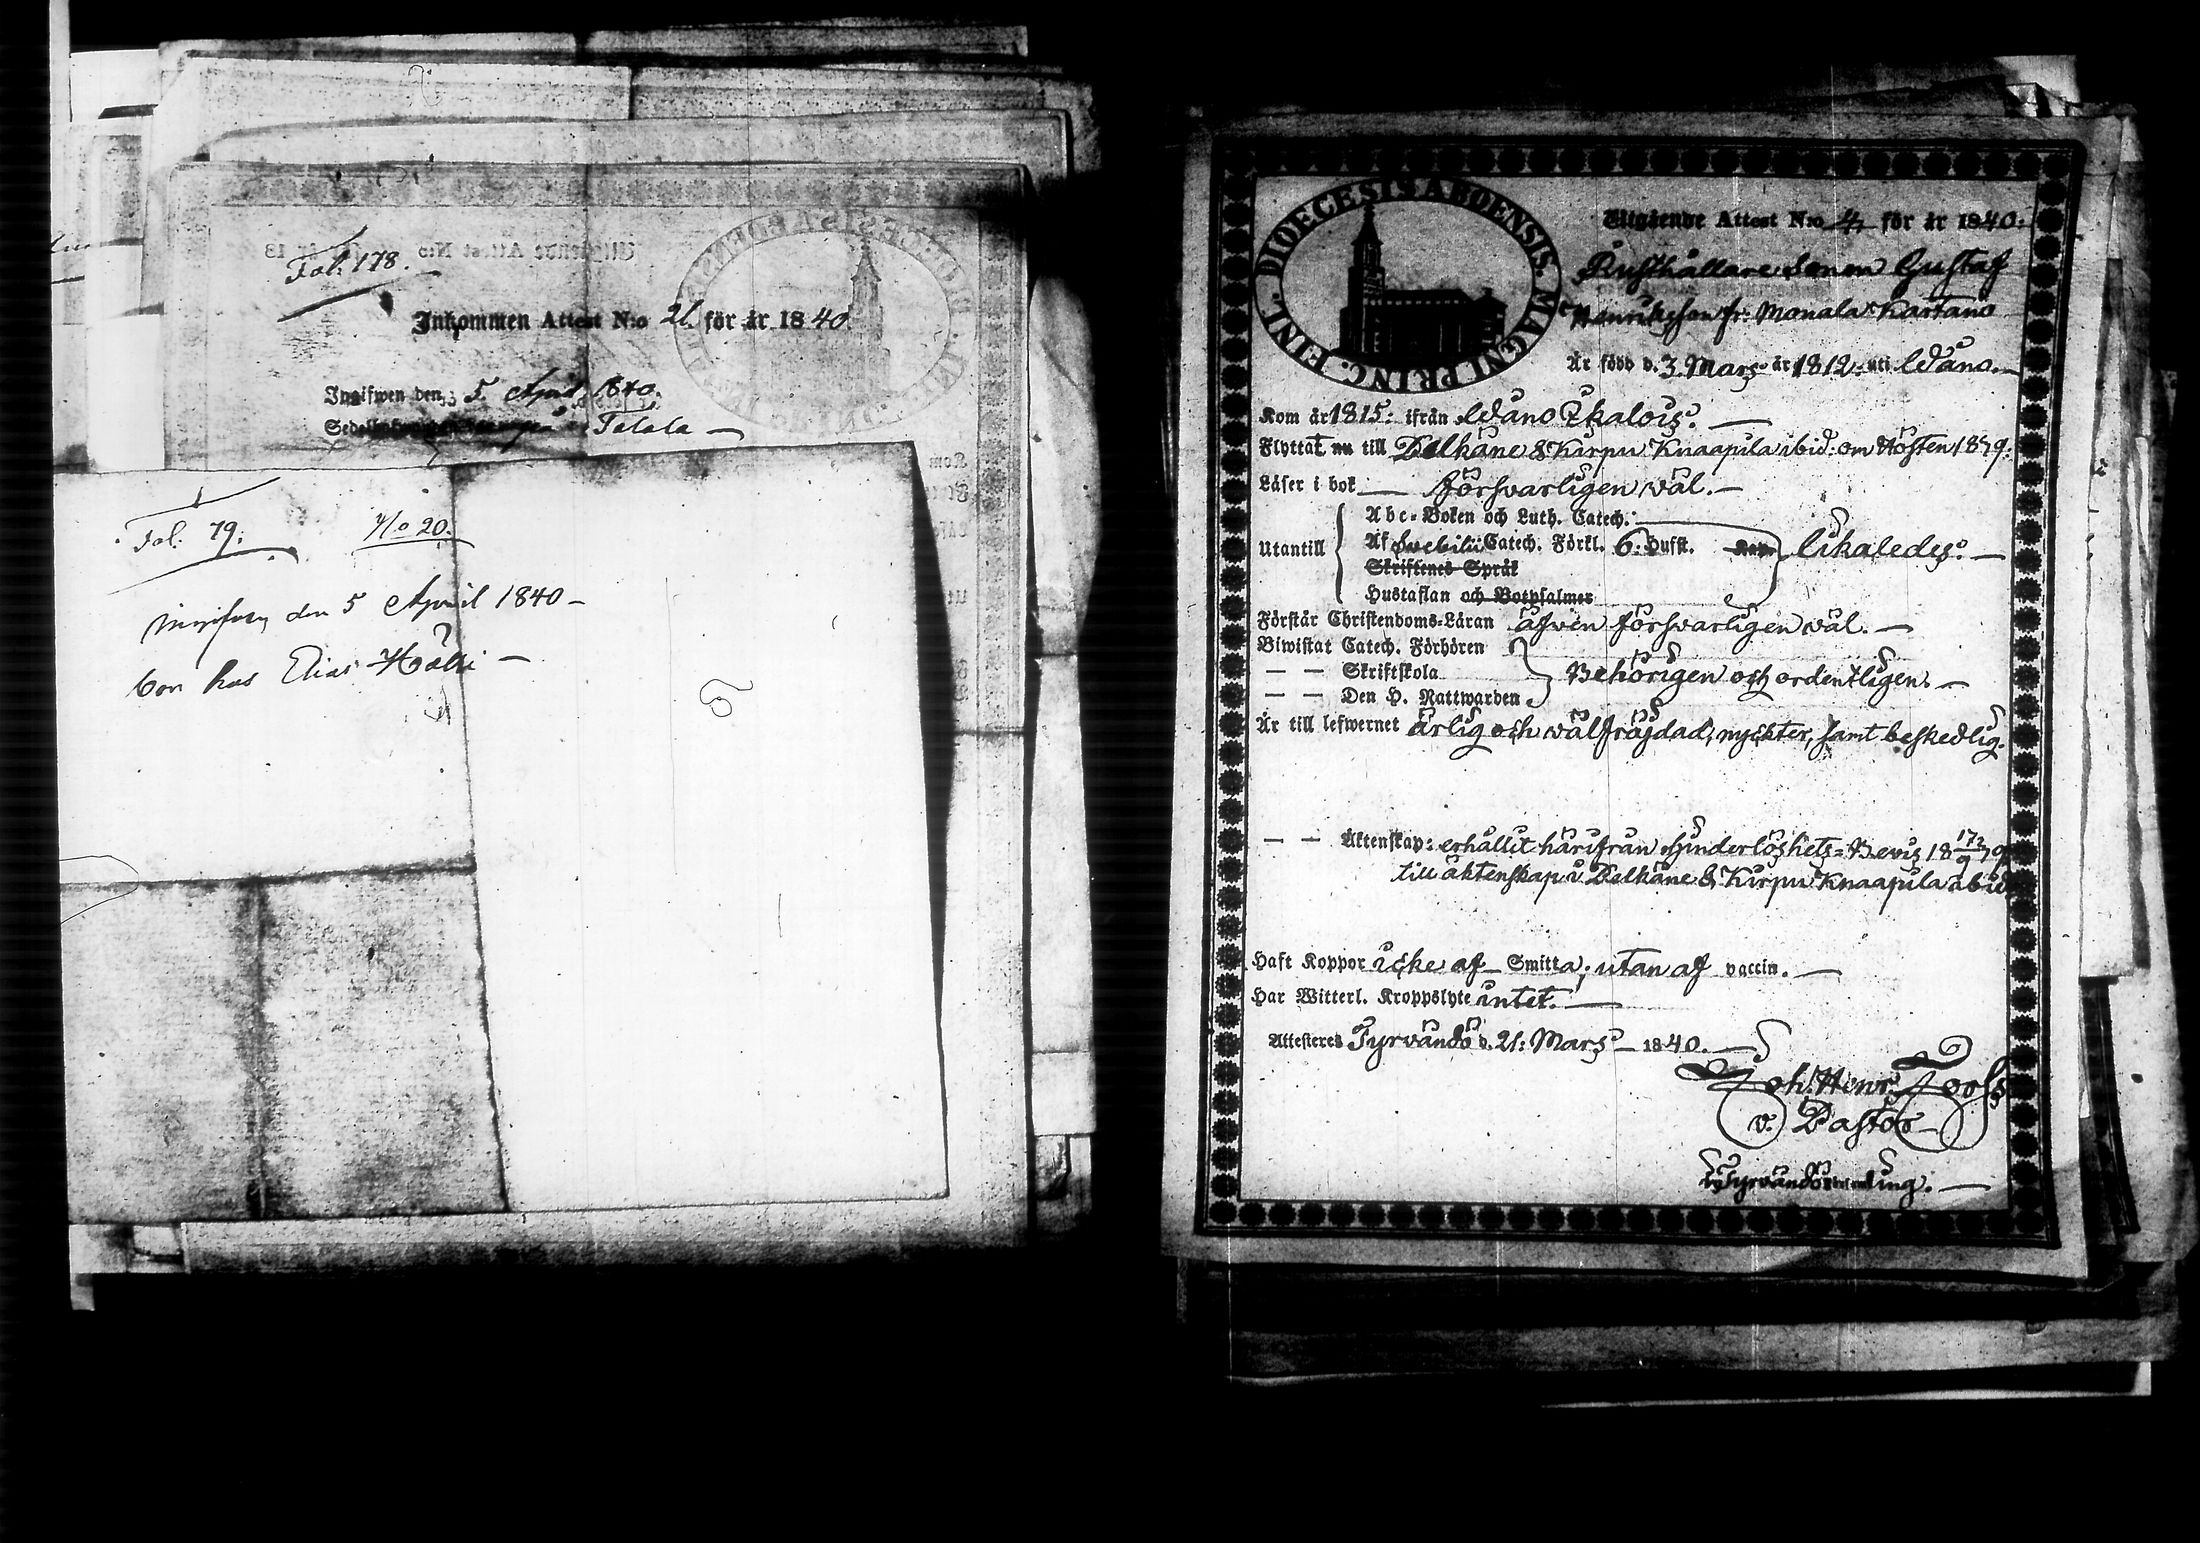 Fol: 178.
Inkommen Attest N:o 21. för år 1840
Ingifwen den 5 April 1840.
Fol. 79. No 20.
den 5 April 1840 –
bor hos Elias
DIOECESIS ABOENSIS. MAGNI PRINC. FINL.
Utgående Attest N:o 4, för år 1840.
Rusthållare Sonen Gustaf
Henriksson fr: Monala Kartano
Är född d. 3. Mars år 1812. uti
Kom år 1815: ifrån
Flyttat nu till Kirpu Knaapila ibid: om Hösten 1839.
Läser i bok försvarligen väl. –
Abc-Boken och Luth. Catech.
Utantill Af Svebilii Catech. Förkl. 6. Hufst. likaledes. –
Skriftenes Språk
Hustaflan och Botpsalmer
Förstår Christendoms-Läran äfven försvarligen väl. –
Biwistat Catech. Förhören
— — Skriftskola Behörigen och ordentligen. –
— — Den H. Nattwarden
Är till lefwernet ärlig och välfräjdad, nyckter, samt beskedlig.
— — Äktenskap: erhållit härifrån Hinderlöshets-Bevis 18 17/9 39
till äktenskap i Kirpu Knaapila ibid
Haft Koppor icke af Smitta, utan af vaccin. –
Har Witterl. Kroppslyte intet. –
Attesteres Tyrvändö d. 21. Mars 1840. –
Joh. Henr.
v. Pastor